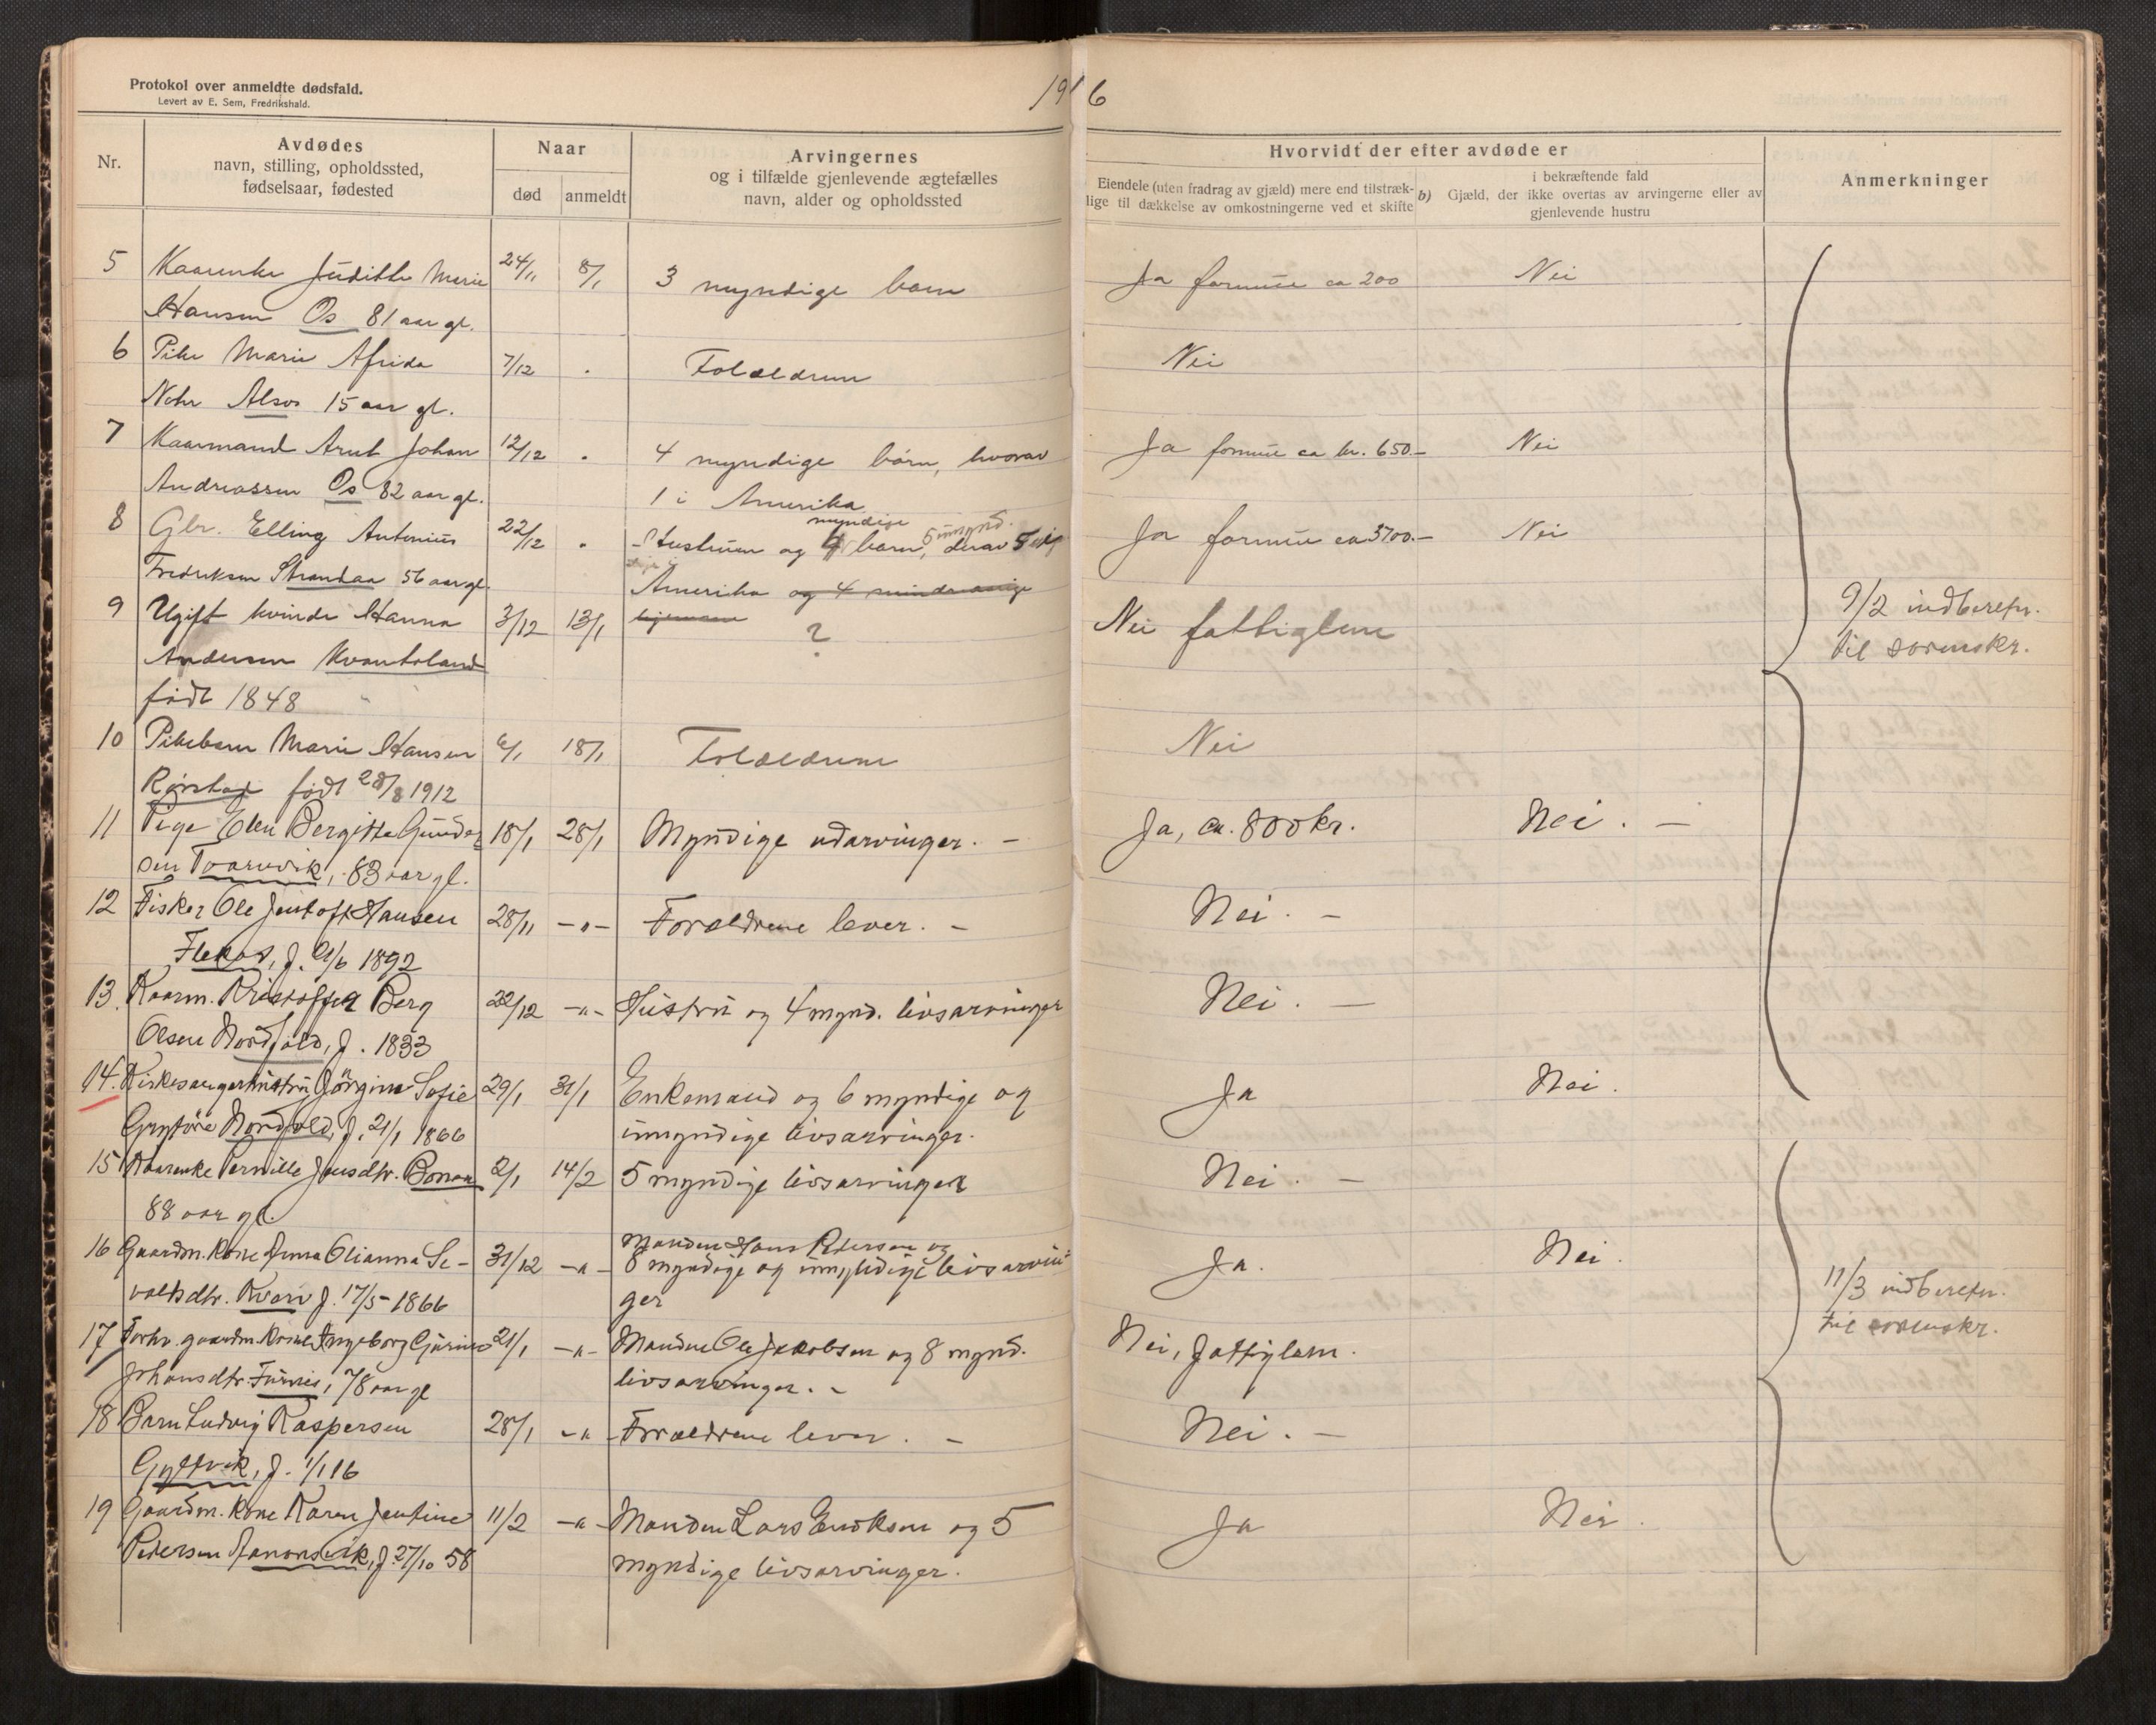 Protokol over anmeldte dødsfald.
Levert av E. Sem, Fredrikshald.
1916
Nr.
Avdødes
navn, stilling, opholdssted,
fødselsaar, fødested
Naar
død
anmeldt
Arvingernes
og i tilfælde gjenlevende ægtefælles
navn, alder og opholdssted
Hvorvidt der efter avdøde er
Eiendele (uten fradrag av gjæld) mere end tilstræk-
lige til dækkelse av omkostningerne ved et skifte
i bekræftende fald
b) Gjæld, der ikke overtas av arvingerne eller av
gjenlevende hustru
Anmerkninger
5 Kaarenke Judithe Marie 24/11 8/1 3 myndige barn Ja formue ca 200 Nei
Hansen Os 81 aar gl.
6 Pike Marie Afrida 7/12 Forældrene Nei
Nohr Alsos 15 aar gl.
7 Kaarmand Arnt Johan 12/12 4 myndige børn, hvorav Ja formue ca kr. 650.- Nei
Andreassen Os 82 aar gl. 1 i Amerika
8 Gbr. Elling Antonius 22/12 Hustruen og 4 myndige barn, 5 umynd. derav Ja formue ca 3700.- Nei
Fredriksen Strandaa 56 aar gl. Amerika og 4 mindreaarige
9 Ugift kvinde Hanna 3/12 13/1 hjemme ? Nei fattiglem
Andersen Kvantoland
født 1848
9/2 indberetn.
til sorenskr.
10 Pikebarn Marie Hansen 6/1 18/1 Forældrene Nei
Rørstad født 28/8 1912
11 Pige Elen Bergitte Gunder 18/1 28/1 Myndige udarvinger. - Ja, ca. 800 kr. Nei. -
sen Tvarvik, 83 aar gl.
12 Fisker Ole Jentoft Hansen 28/11 -"- Forældrene lever. - Nei. -
Flekos, f. 21/6 1892
13. Kaarm. Kristoffer Berg 22/12 -"- Hustru og 4 mynd. livsarvinger Nei. -
Olsen Nordfold, f. 1833
14. Kirkesangerhustru Jørgine Sofie 29/1 31/1 Enkemand og 6 myndige og Ja Nei.
Grytöre Nordfold, f. 21/1 1866 umyndige livsarvinger.
15 Kaarenke Pernille Jensdtr. Bonaa 2/1 14/2 5 myndige livsarvinger Nei. -
88 aar gl.
16 Gaardm. kone Anna Olianna Si- 31/12 -"- Manden Hans Petersen og Ja. Nei.
8 myndige og umyndige livsarvin-
valdsdtr. Kvarv f. 17/5 1866 ger
11/3 indberetn.
til sorenskr.
17 Forhv. gaardm. kone Ingeborg Gurine 21/1 -"- Manden Ole Jakobsen og 8 mynd. Nei, fattiglem.
Johansdtr. Furnes, 78 aar gl livsarvinger. -
18 Barn Ludvig Kaspersen 28/1 -"- Forældrene lever. - Nei. -
Gyltvik, f. 1/1 16
19 Gaardm. kone Karen Jentine 11/2 -"- Manden Lars Eriksen og 5 Ja Nei.
Pedersen f. 27/10 58 myndige livsarvinger.